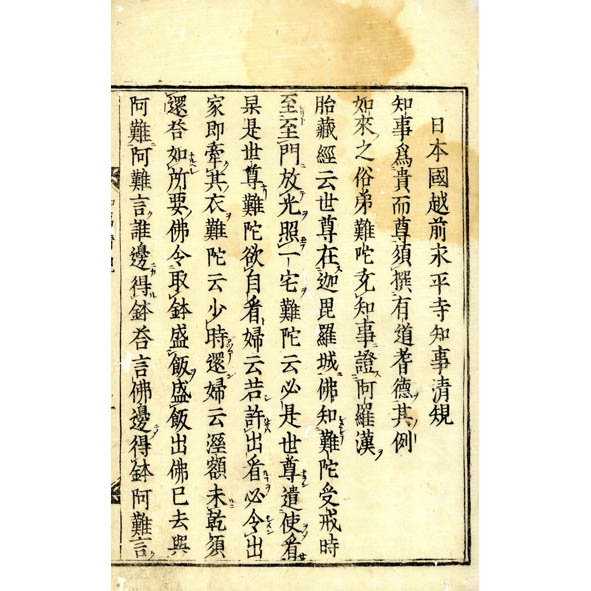 日本國越前永平寺知事清規
知事爲貴而尊須撰有道耆德其例
如來之俗弟難陀充知事證阿羅漢
胎藏經云世尊在迦毘羅城佛知難陀受戒時
至至門放光照一宅難陀云必是世尊遣使看
杲是世尊難陀欲自看婦云若許出看必令出
家即牽其衣難陀云少時還婦云溼額未乾須
還答如所要佛令取鉢盛飯盛飯出佛已去與
阿難阿難言誰邊得鉢答言佛邊得鉢阿難言